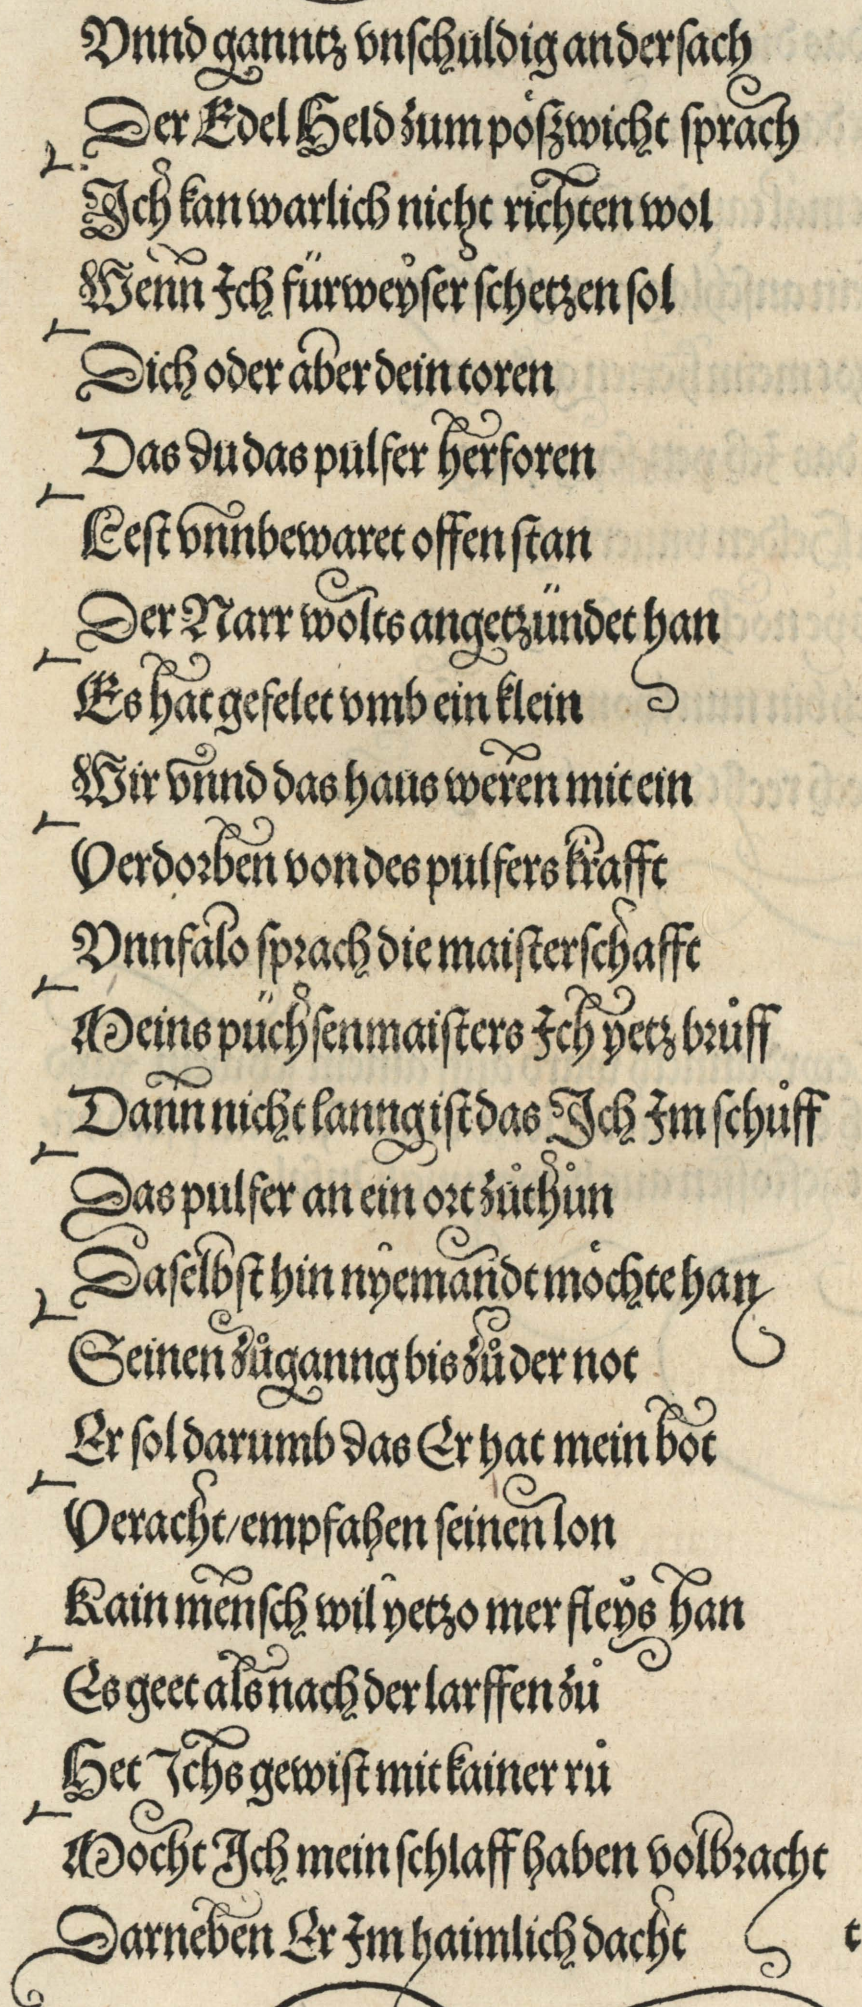 Vnnd ganntz vnschuldig an der sach
Der Edel Held zum pößwicht sprach
Ich kan warlich nicht richten wol
Wenn Ich für weyser schetzen sol
Dich oder aber dein toren
Das du das pulfer herforen
Lest vnnbewaret offen stan
Der Narr wolts angetzündet han
Es hat gefelet vmb ein klein
Wir vnnd das haus weren mit ein
Verdorben von des pulfers krafft
Vnnfalo sprach die maisterschafft
Meins püchsenmaisters Ich yetz brůff
Dann nicht lanng ist das Ich Im schůff
Das pulfer an ein ort zůthůn
Daselbst hin nyemandt möchte han
Seinen zůganng bis zů der not
Er sol darumb das Er hat mein bot
Veracht/ empfahen seinen lon
Kain mensch wil yetzo mer fleys han
Es geet als nach der larffen zů
Het Ichs gewist mit kainer rů
Mocht Ich mein schlaff haben volbracht
Darneben Er Im haimlich dacht t